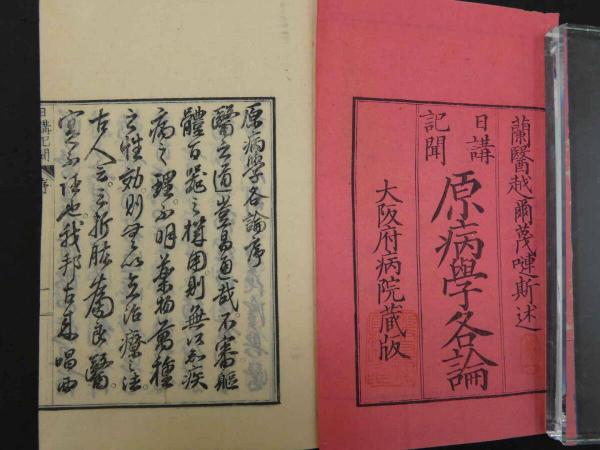 蘭醫越爾蔑嗹斯述
日講
記聞
原病學各論
大阪府病院蔵版
原病學各論序
醫之道豈易通哉。不審軀
體百器之機用則無以知疾
病之理。不明藥物萬種
之性効則無以立治療之法。
古人云。三折肱為良醫。
宜不誣也。我邦古來唱西
日講記聞
序